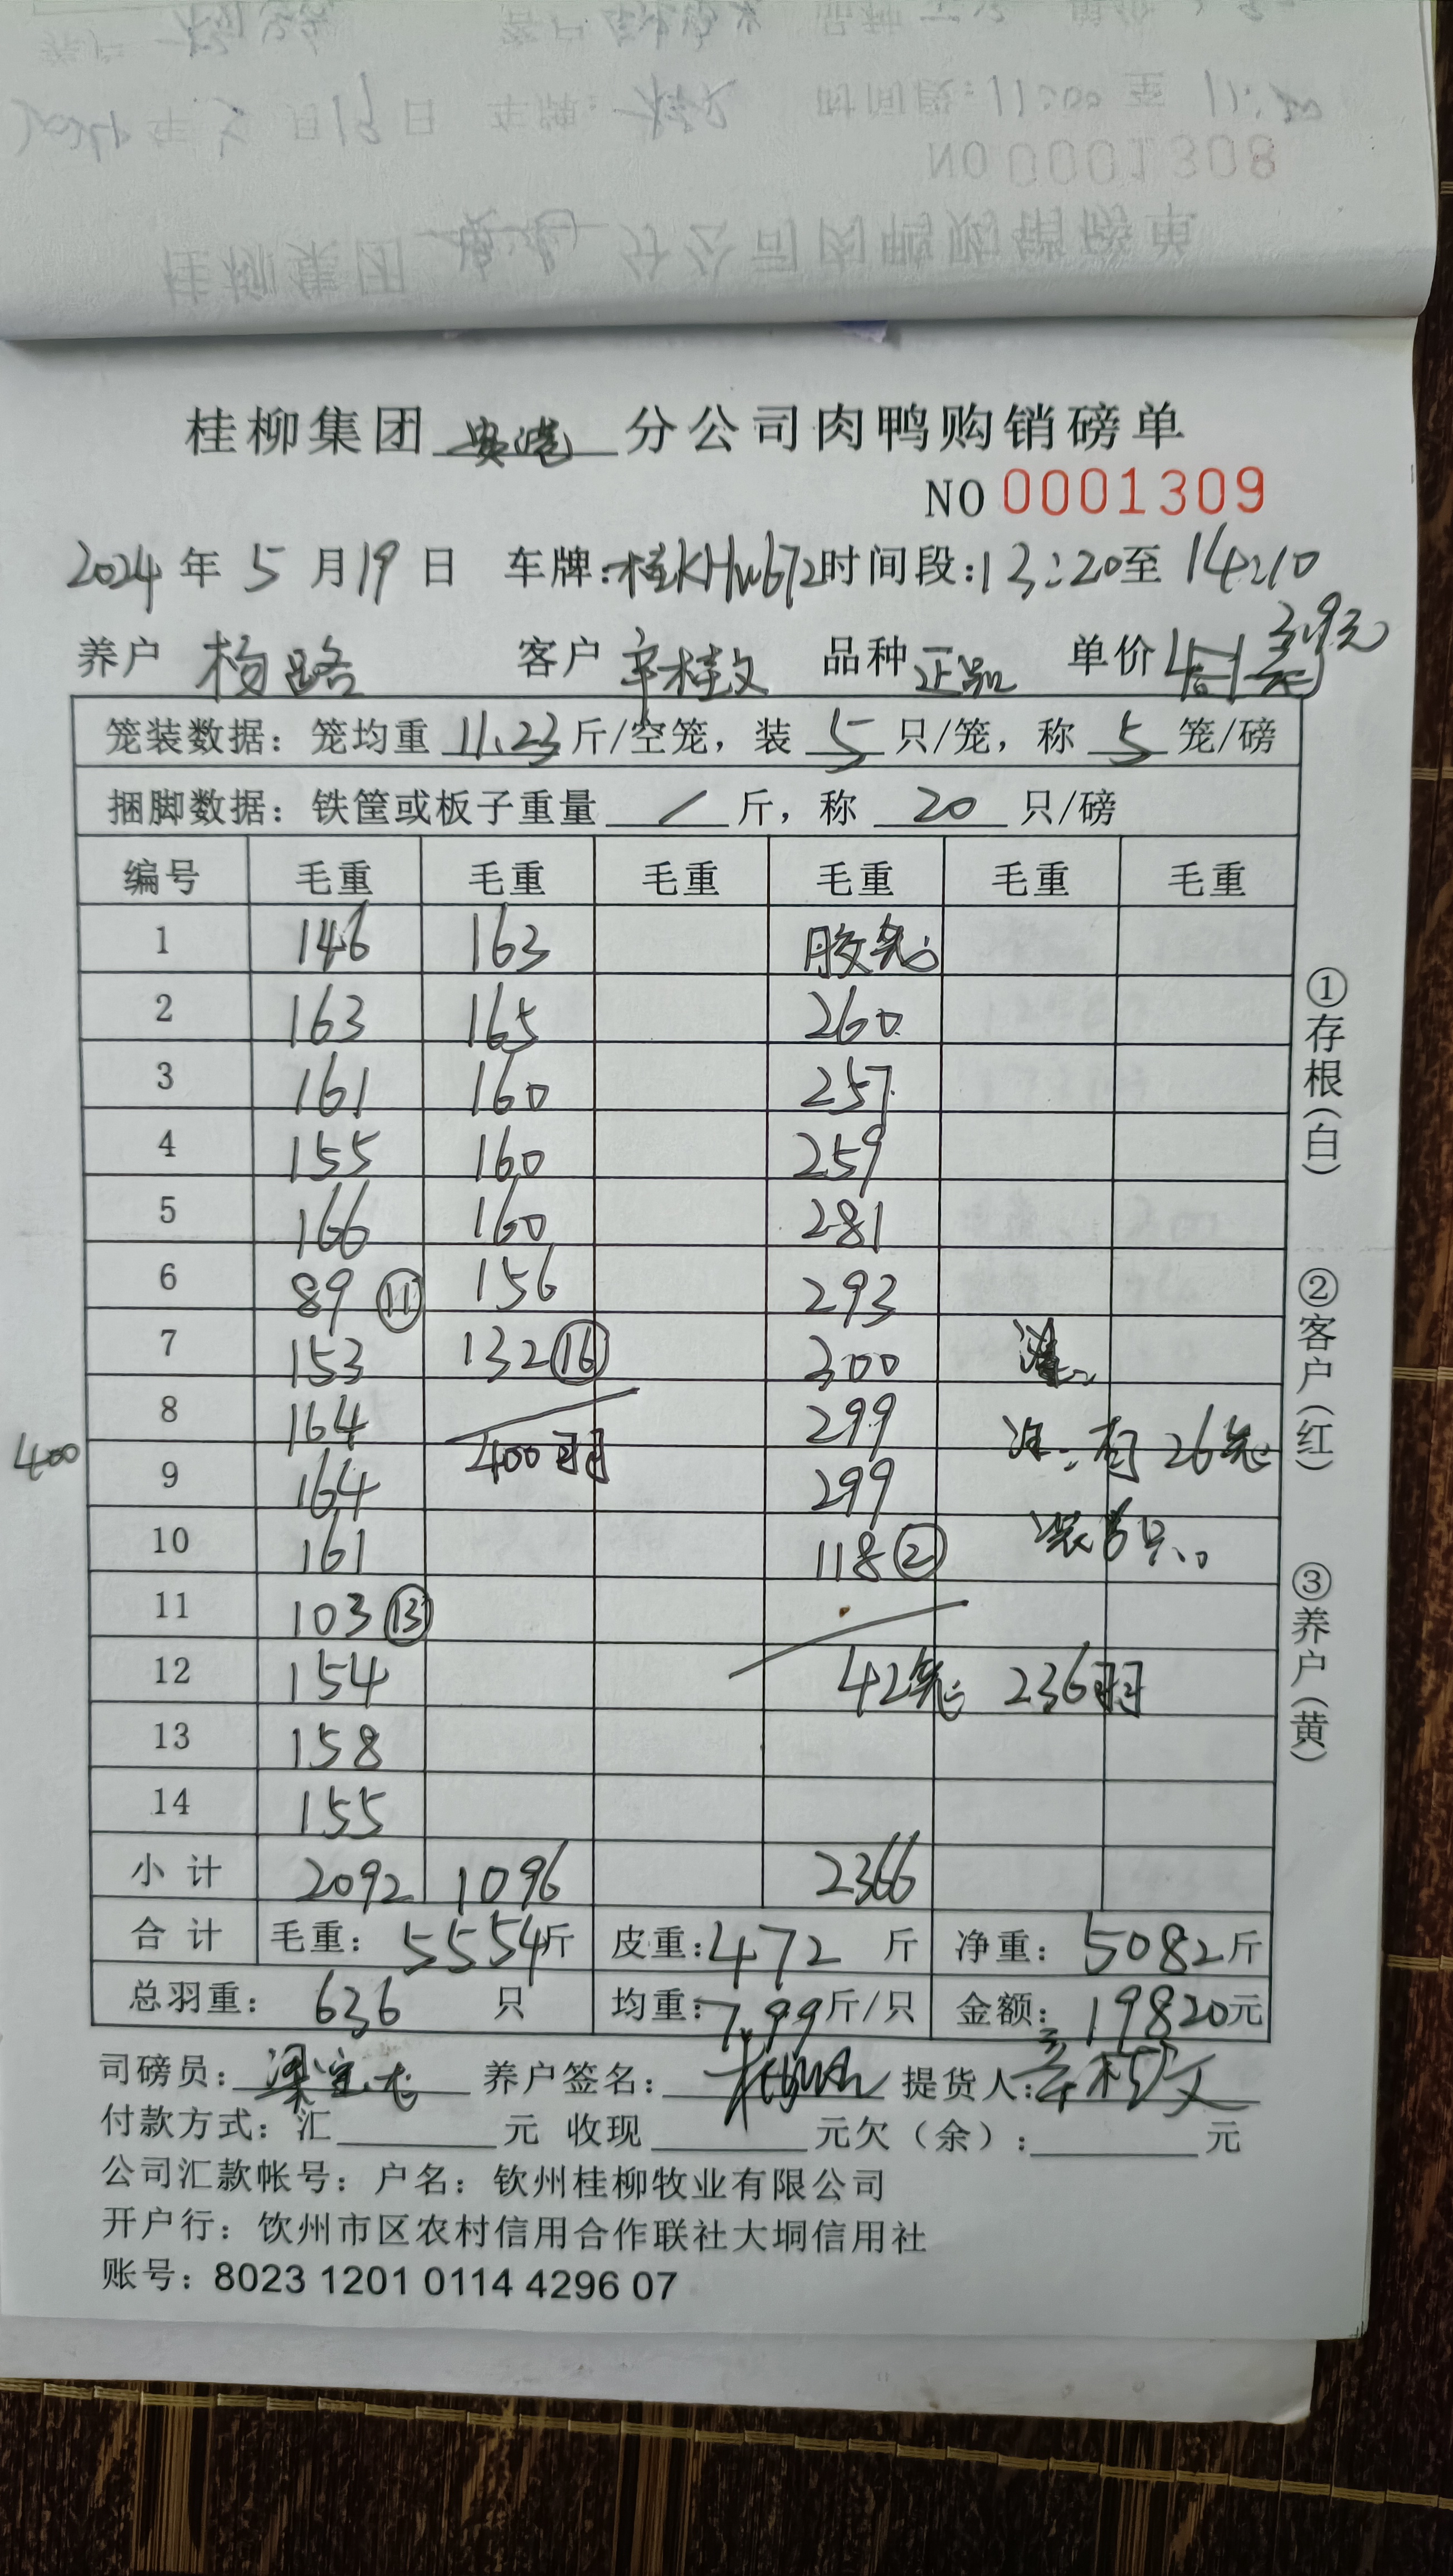 NO 0001308
桂柳集团 分公司肉鸭购销磅单
桂柳集团 分公司肉鸭购销磅单
NO 0001309
2024 年 5 月 19 日 车牌:桂KHW672 时间段:13:20 至 14:10
养户 杨路 客户 辛桂文 品种 正品 单价 3.9元
笼装数据: 笼均重 11.23 斤/空笼, 装 5 只/笼, 称 5 笼/磅
捆脚数据: 铁筐或板子重量 / 斤, 称 20 只/磅
编号 毛重 毛重 毛重 毛重 毛重 毛重
1 146 163 胶笼:
2 163 165 260
3 161 160 257
4 155 160 259
5 166 160 281
6 89 ⑪ 156 293
7 153 132 ⑯ 300
8 164 299 注:有26笼
400
9 164 400羽 299
10 161 118 ② 装6只.
11 103 ⑬
12 154 42笼 236羽
13 158
14 155
小 计 2092 1096 2366
合 计 毛重: 5554斤 皮重: 472 斤 净重: 5082斤
总羽重: 636 只 均重: 7.99斤/只 金额: 19820元
司磅员: 养户签名: 提货人: 辛桂文
付款方式: 汇 元 收现 元欠(余): 元
公司汇款帐号: 户名: 钦州桂柳牧业有限公司
开户行: 饮州市区农村信用合作联社大垌信用社
账号: 8023 1201 0114 4296 07
①存根(白)
②客户(红)
③养户(黄)